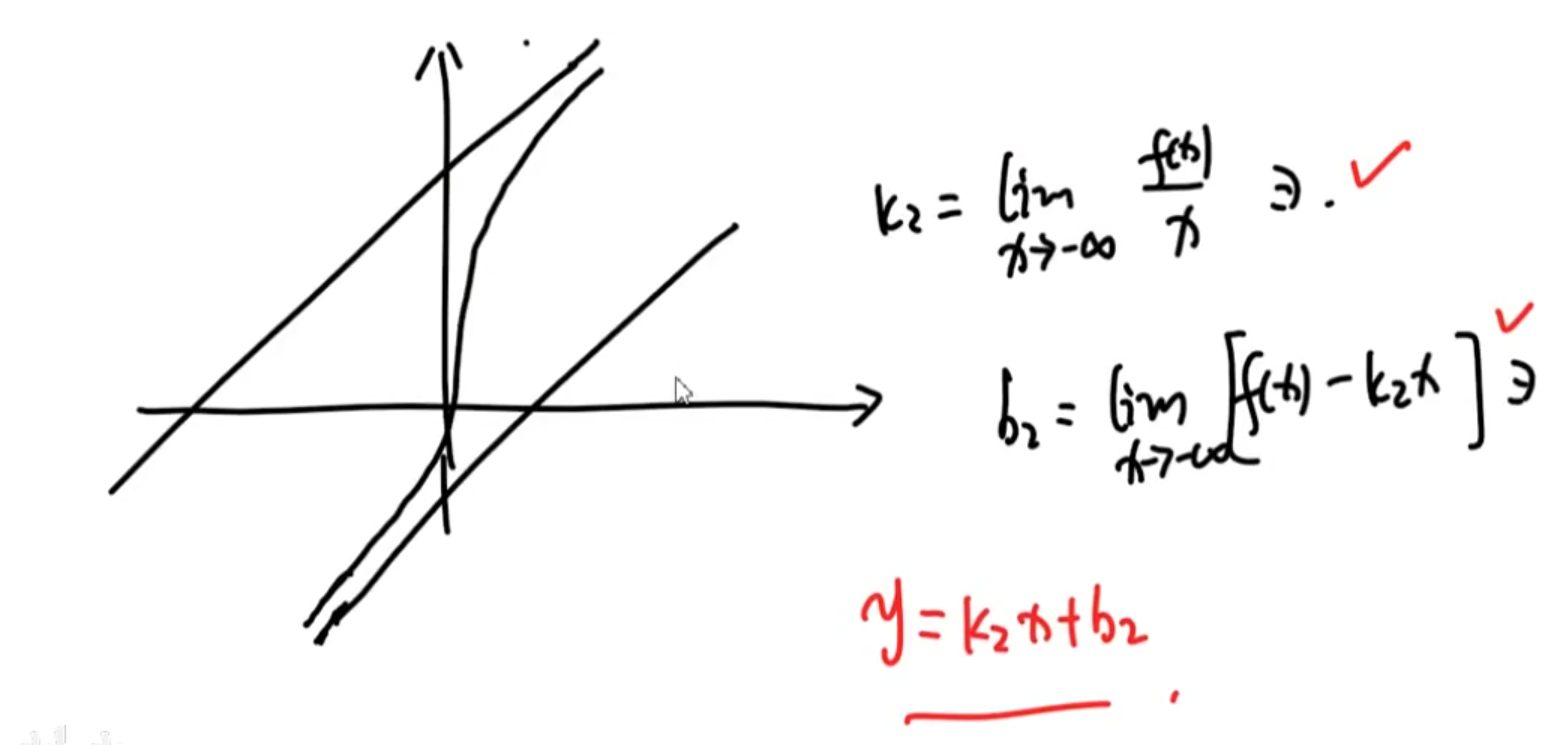 k₂ = lim x→-∞ f(x)/x ∃.
b₂ = lim x→-∞ [f(x) - k₂x] ∃
y = k₂x + b₂